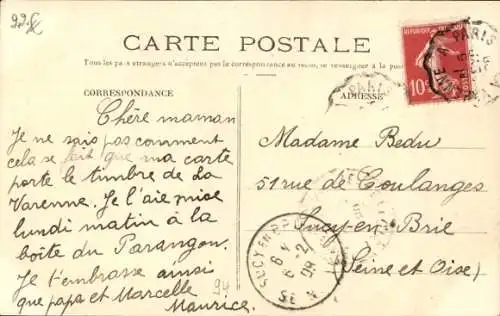 22 €
CARTE POSTALE
Tous les pays étrangers n'acceptent pas la correspondance au recto, se renseigner à la poste
CORRESPONDANCE
Chère maman
Je ne sais pas comment
cela se fait que ma carte
porte le timbre de La
Varenne. Je l'aie mise
lundi matin à la
boîte du Parangon.
Je t'embrasse ainsi
que papa et Marcelle
Maurice.
94
ADRESSE
Madame Bedu
51 rue de Coulanges
Sucy-en-Brie
(Seine et Oise)
10
PARIS
PARIS
SUCY EN BRIE
6 -2
09